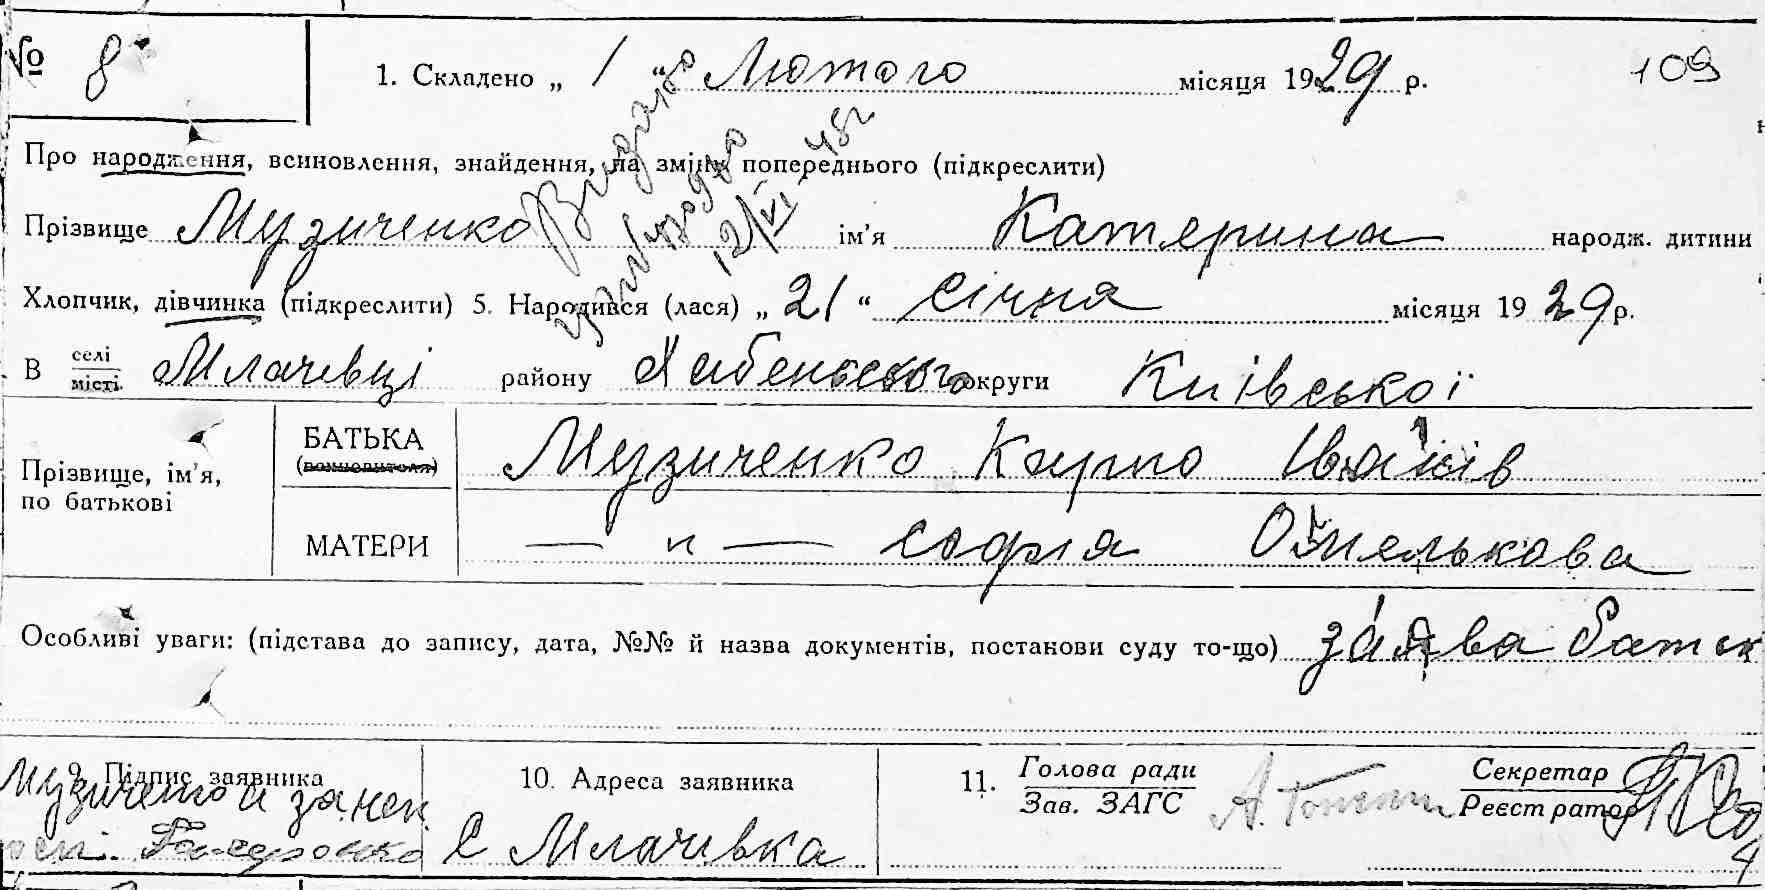 № 8 1. Складено „ 1 “ Лютого місяця 1929 р. 109
Про народження, всиновлення, знайдення, на зміну попереднього (підкреслити)
Видано
12/VI 48р
Прізвище Музиченко ім'я Катерина народж. дитини
Хлопчик, дівчинка (підкреслити) 5. Народився (лася) „ 21 “ січня місяця 1929 р.
В селі Млачівці району Хабенського округи Київської
місті
Прізвище, ім'я, по батькові
БАТЬКА Музиченко Карпо Іванів
(вошовителя)
МАТЕРИ — " — Софія Омелькова
Особливі уваги: (підстава до запису, дата, №№ й назва документів, постанови суду то-що) заява батьк
9. Підпис заявника 10. Адреса заявника 11. Голова ради Секретар
Зав. ЗАГС Реєстратор
Музиченко а за неп
С Млачівка